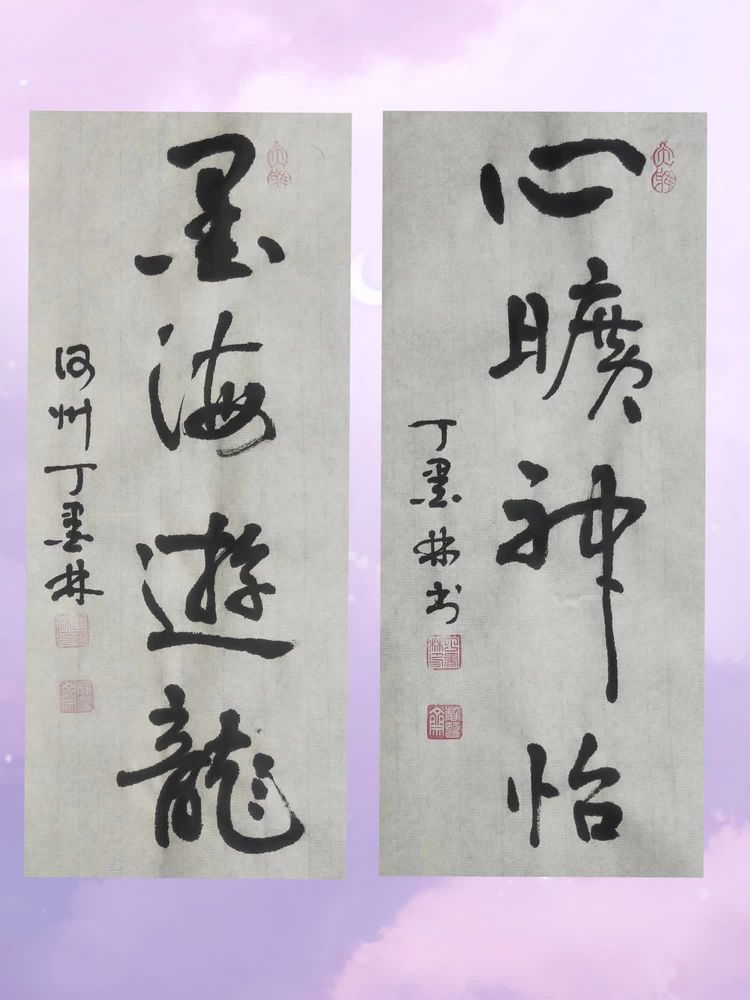 心曠神怡
丁墨林书
墨海遊龍
河州丁墨林